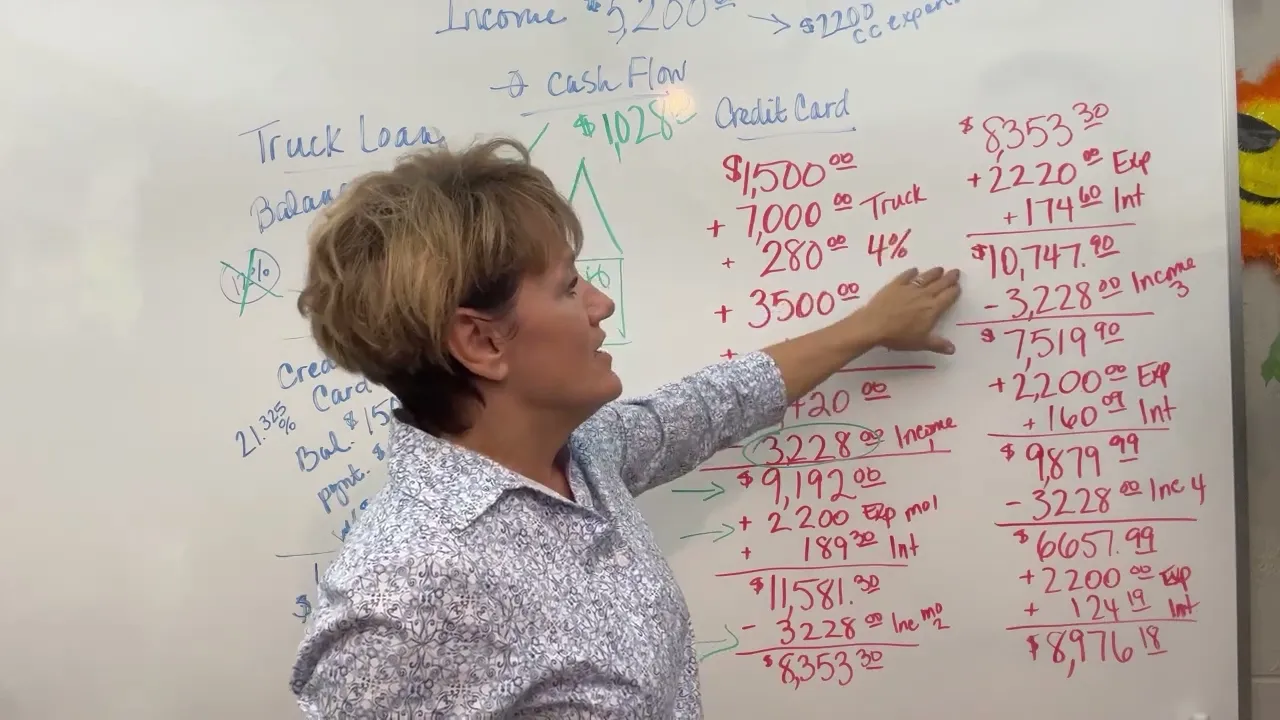 Income $5,200.00
→ $2200
cc
Cash Flow
$1,028
Truck Loan
Credit Card
$1,500.00
+ 7,000.00 Truck
+ 280.00 4%
+ 3500.00
+
+20.00
- 3228.00 Income 1
$9,192.00
+ 2200 Exp mo1
+ 189.30 Int
$11,581.30
- 3228.00 Inc mo 2
$8,353.30
$8,353.30
+ 2220.00 Exp
+ 174.60 Int
$10,747.90
- 3,228.00 Income 3
$7,519.90
+ 2,200.00 Exp
+ 160.09 Int
$9,879.99
- 3228.00 Inc 4
$6657.99
+ 2200.00 Exp
+ 124.19 Int
$8,976.18
Card
21.325%
Bal. $150
pymt. $